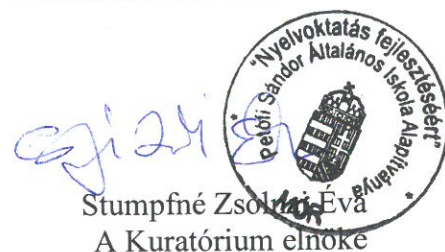 "Nyelvoktatás fejlesztéséért"
Petőfi Sándor Általános Iskola Alapítványa
MÓR
Stumpfné Zsolnai Éva
A Kuratórium elnöke